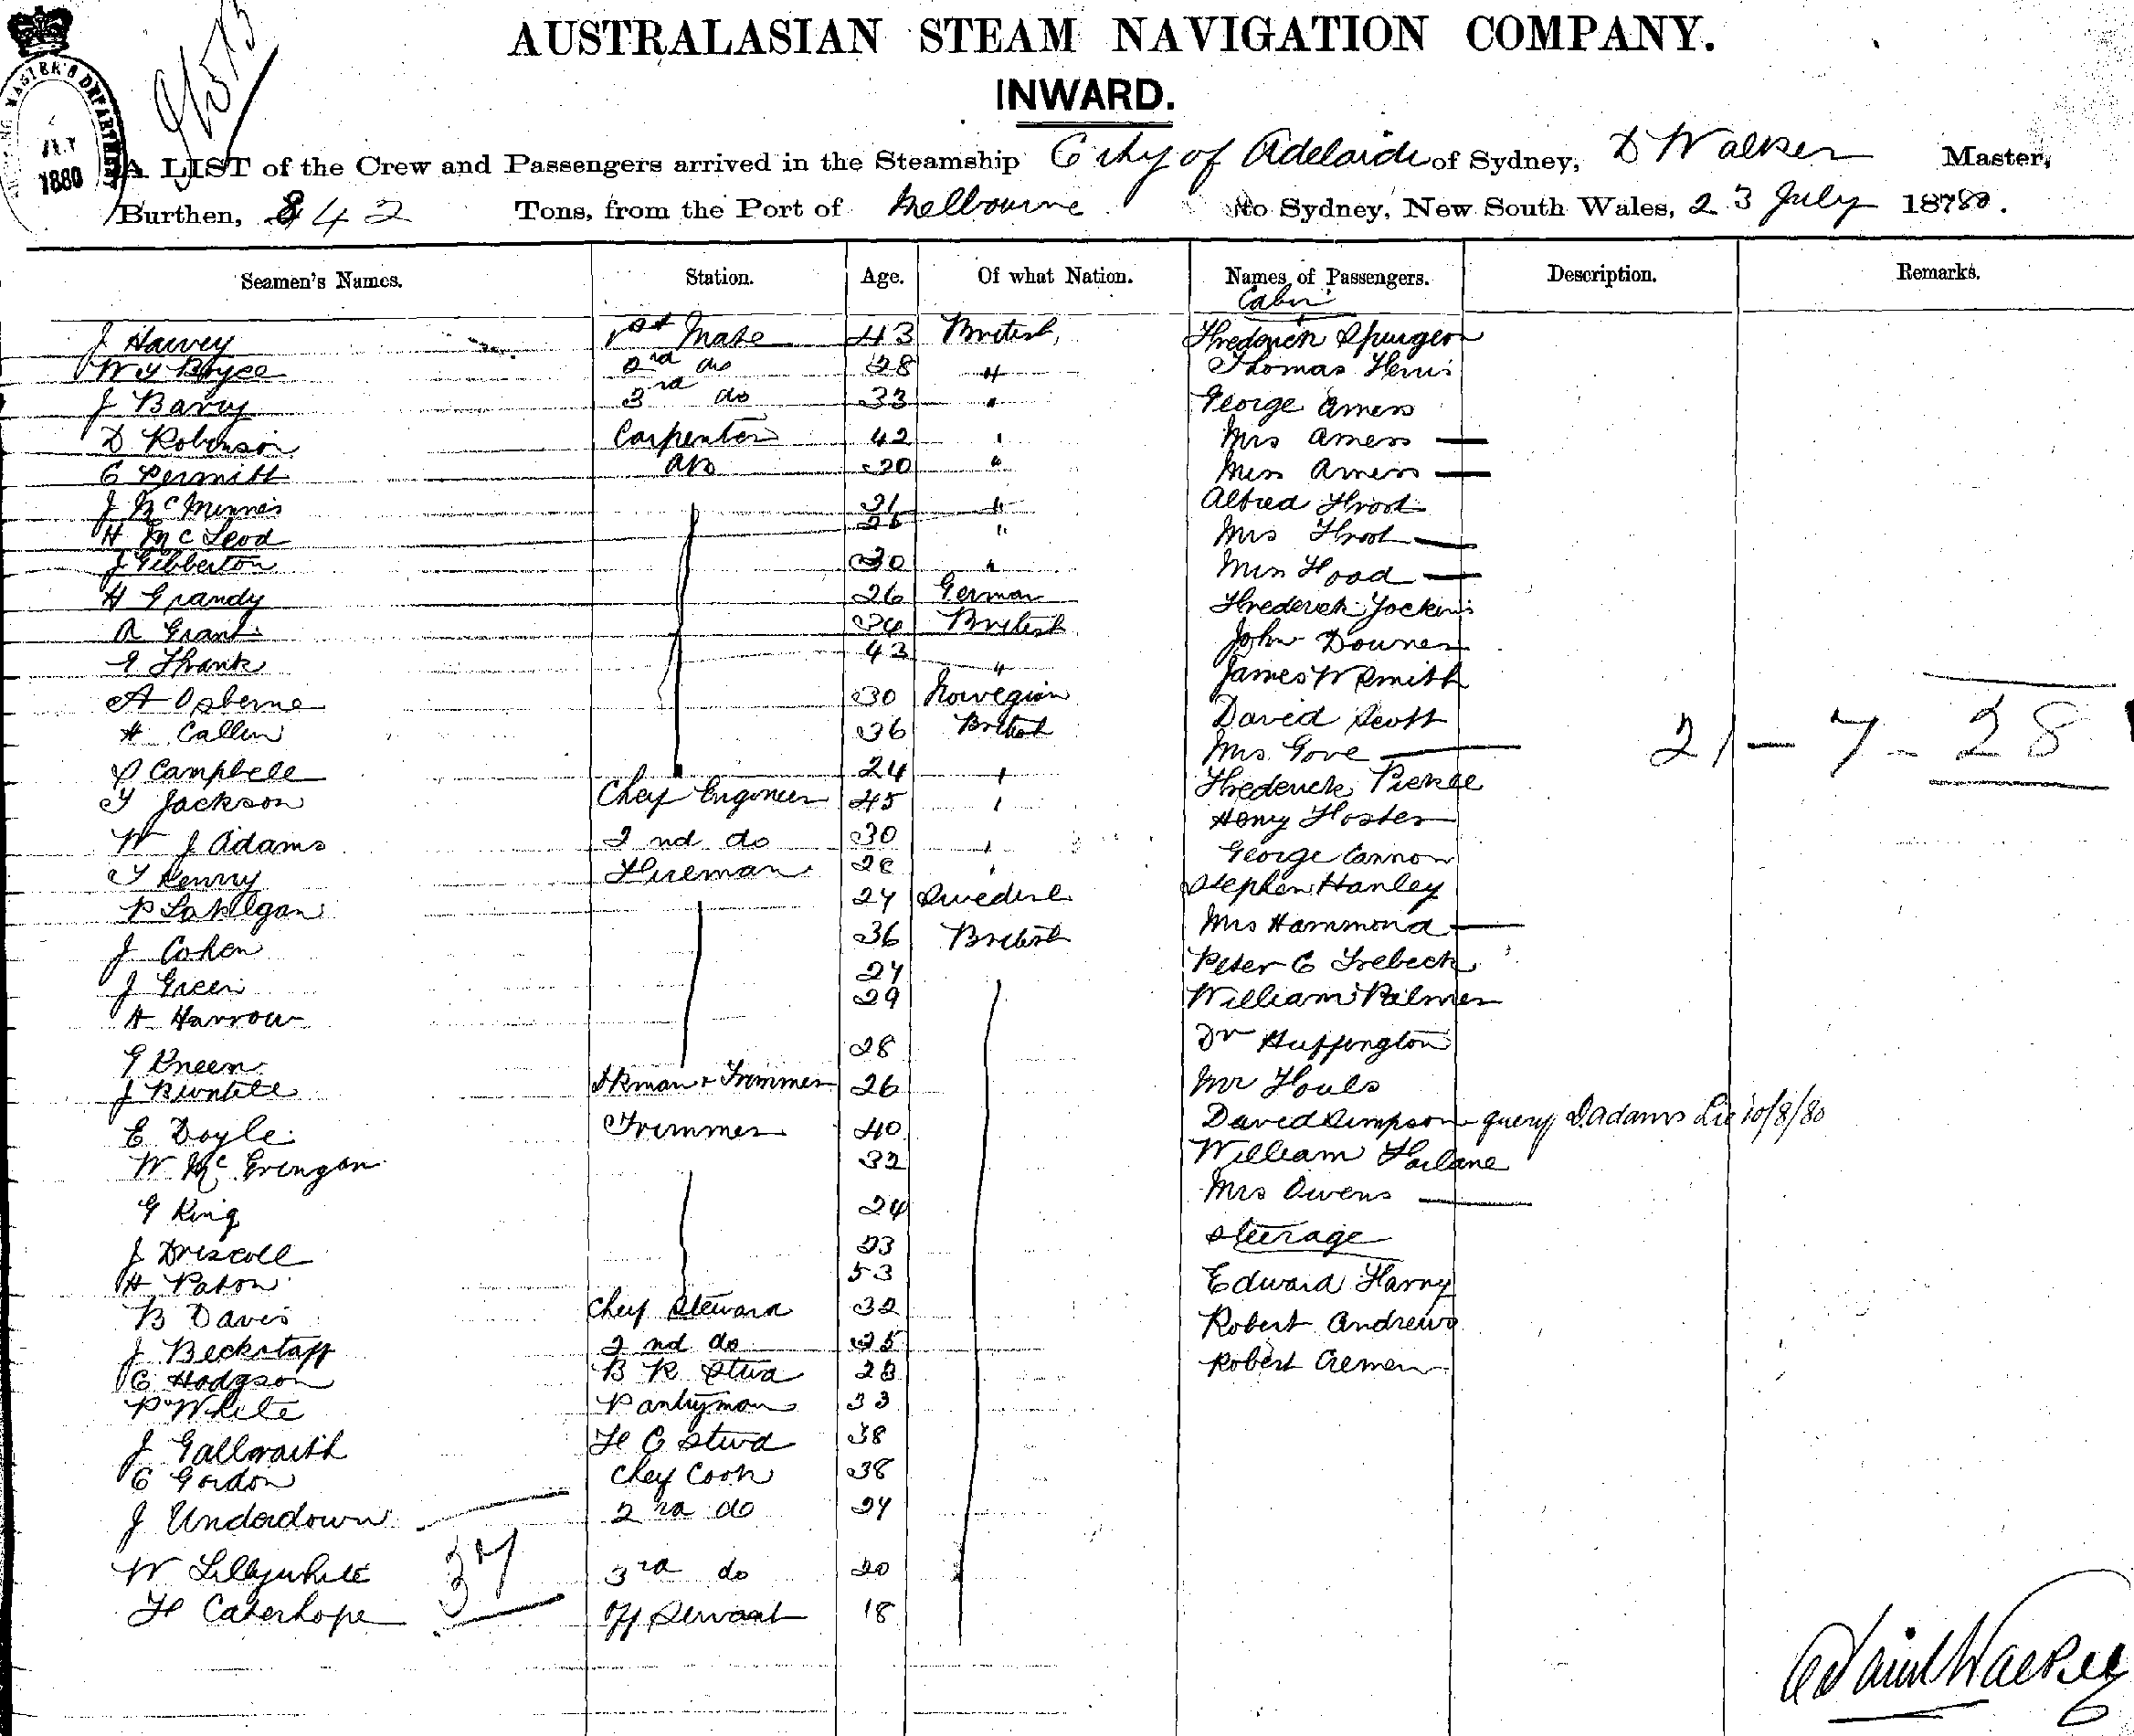 AUSTRALASIAN STEAM NAVIGATION COMPANY.
INWARD.
A LIST of the Crew and Passengers arrived in the Steamship City of Adelaide of Sydney, D Walker Master,
Burthen, 842 Tons, from the Port of Melbourne to Sydney, New South Wales, 23 July 18780.
1880
Seamen's Names. Station. Age. Of what Nation. Names of Passengers. Description. Remarks.
Cabin
J Harvey 1st Mate 43 British Frederick Spurgeon
Wy Boyce 2nd do 28 " Thomas
J Barry 3rd do 33 " George Amess
D Robinson Carpenter 42 " Mrs Amess —
C Permitt AB 20 " Miss Amess —
J McMinnis 21 " Alfred Frost
H McLeod " Mrs Frost —
J Gibberton 30 " Miss Hood —
H Grandy 26 German Frederick
A Grant British John Downes
G Frank 43 " James W Smith
A Osberne 30 Norwegian David Scott
H Callin 36 British Mrs Gove — 21 — 7 - 28
D Campbell 24 " Frederick
T Jackson Chef Engineer 45 " Henry Foster
W J Adams 2nd do 30 " George Cannon
T Kenny Fireman 28 " Stephen Hanley
P 24 Swedish Mrs Hammond —
J Cohen 36 British Peter C Trebeck
J Green 27 William Palmer
H Harrow 29 Dr Huffington
G Kneen 28 Mr Fouls
J Fkman & Trimmer 26 David Simpson - query D. Adams Lie 10/8/80
E Doyle Trimmer 40 William Farlane
W Mc 32 Mrs Owens —
G King 24 Steerage
J Driscoll 23
H Paton 53 Edward Harry
B Davis Chef Steward 32 Robert Andrews
J Beckstaff 2nd do 25 Robert Cremen
C Hodgson B R Stwd 28
P White Pantryman 33
J Gallwaith F C Stwd 38
C Gordon Chef Cook 38
J Underdown 2nd do 24
W Lillywhite 37 3rd do 20
F Caterhope Off Servant 18
David Walker